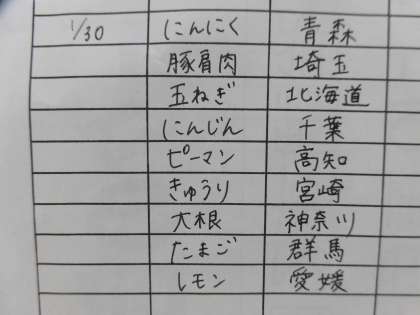 1/30 にんにく 青森
豚肩肉 埼玉
玉ねぎ 北海道
にんじん 千葉
ピーマン 高知
きゅうり 宮崎
大根 神奈川
たまご 群馬
レモン 愛媛